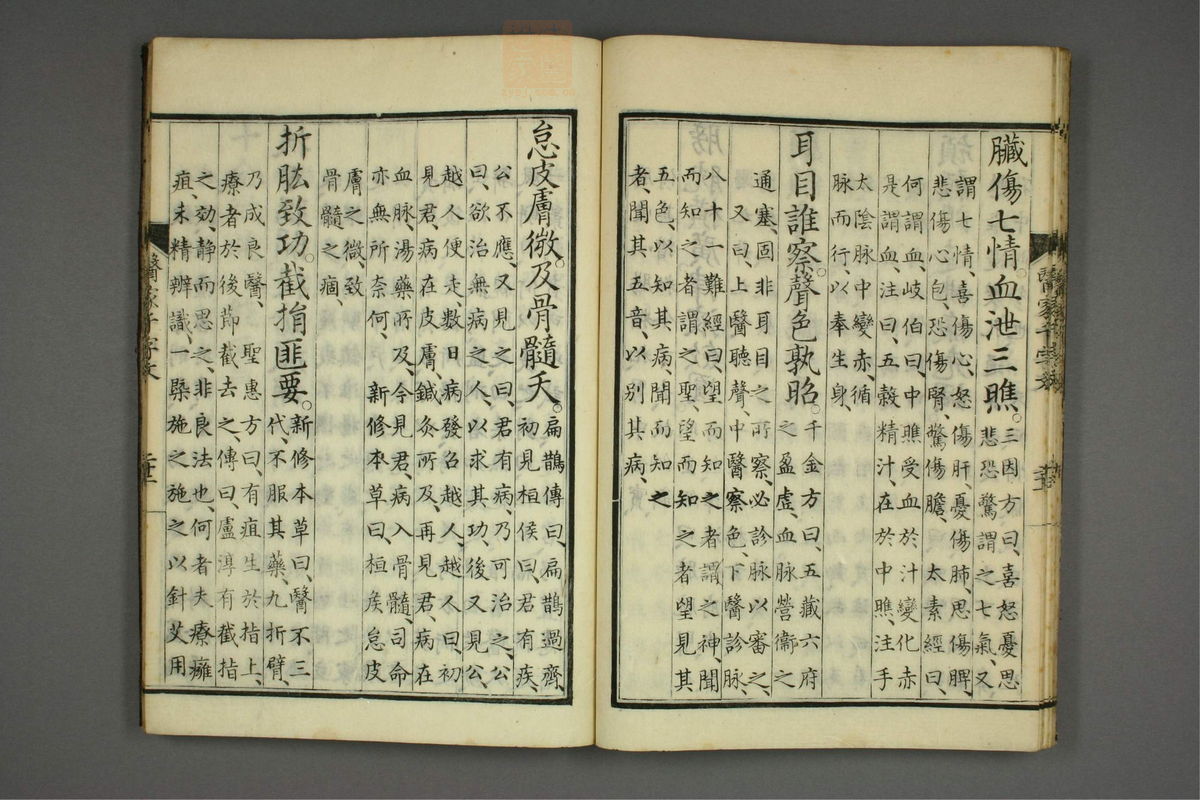 臟傷七情。血泄三瞧。三因方曰、喜怒憂思
悲恐驚謂之七氣、又
謂七情、喜傷心、怒傷肝、憂傷肺、思傷脾、
悲傷心包、恐傷腎、驚傷膽、太素經曰、
何謂血、岐伯曰、中瞧受血於汁變化赤
是謂血注曰、五穀精汁、在於中瞧、注手
太陰脉中變赤、循
脉而行、以奉生身、
耳目誰察。聲色孰昭。千金方曰、五藏六府
之盈虛、血脉營衞之
通塞、固非耳目之所察、必診脉以審之、
又曰、上醫聽聲、中醫察色、下醫診脉、
八十一難經曰、望而知之者謂之神、聞
而知之者謂之聖、望而知之者望見其
五色、以知其病、聞而知之
者、聞其五音、以別其病、
醫家千字文
怠皮膚微。及骨髓夭。扁鵲傳曰、扁鵲過齊
初見桓侯曰君有疾、
公不應、又見之曰、君有病、乃可治之、公
曰、欲治無病之人、以求其功、後又見公、
越人便走、數日病發召越人、越人曰、初
見君、病在皮膚、鍼灸所及、再見君、病在
血脉、湯藥所及、今見君、病入骨髓、司命
亦無所奈何、新修本草曰、桓矦怠皮
膚之微、致
骨髓之痼、
折肱致功。截指匪要。新修本草曰、醫不三
代、不服其藥、九折臂、
乃成良醫、聖惠方曰、有疽生於指上、
療者於後節截去之、傳曰、盧淳有截指
之効、静而思之、非良法也、何者夫療癰
疽、未精辨識、一槩施之、施之以針艾用
醫家千字文